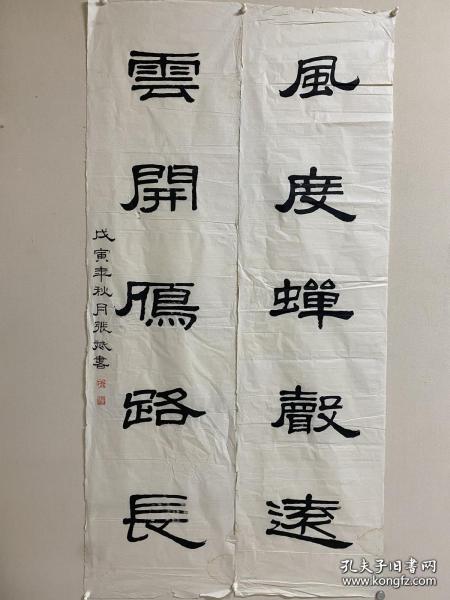 風度蟬聲遠
雲開鴈路長
戊寅年秋月張
書
孔夫子旧书网
www.kongfz.com